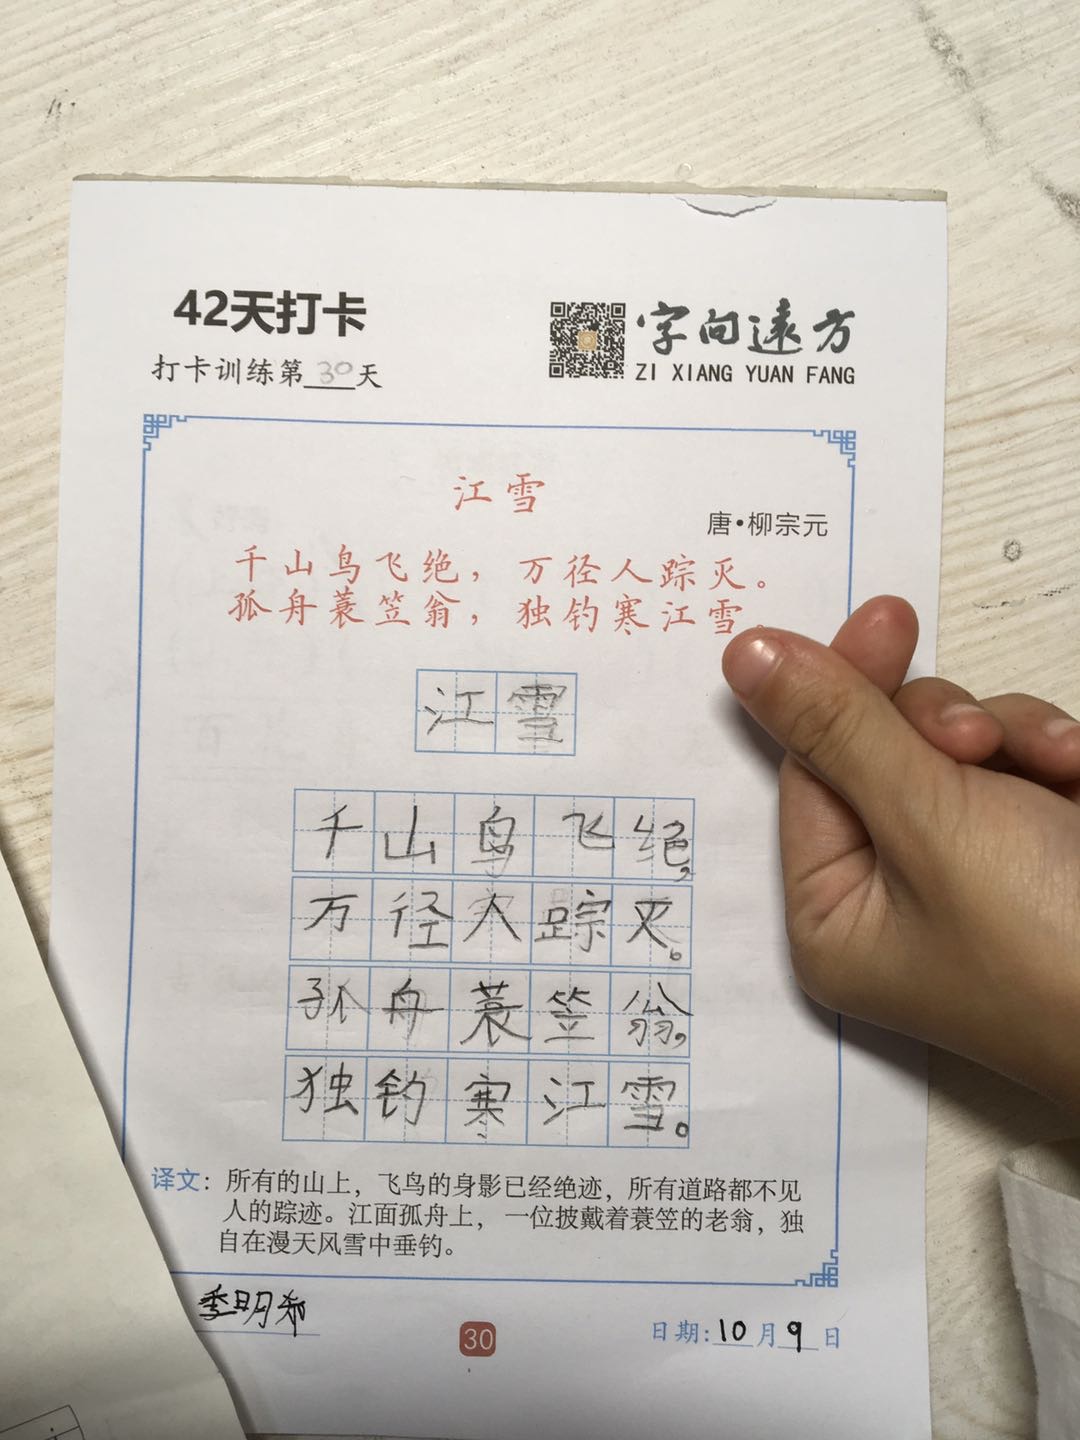 42天打卡
打卡训练第30天
字向远方
ZI XIANG YUAN FANG
江雪
唐·柳宗元
千山鸟飞绝，万径人踪灭。
孤舟蓑笠翁，独钓寒江雪。
江雪
千山鸟飞绝，
万径人踪灭。
孤舟蓑笠翁，
独钓寒江雪。
译文：所有的山上，飞鸟的身影已经绝迹，所有道路都不见
人的踪迹。江面孤舟上，一位披戴着蓑笠的老翁，独
自在漫天风雪中垂钓。
季明希
30
日期:10月9日